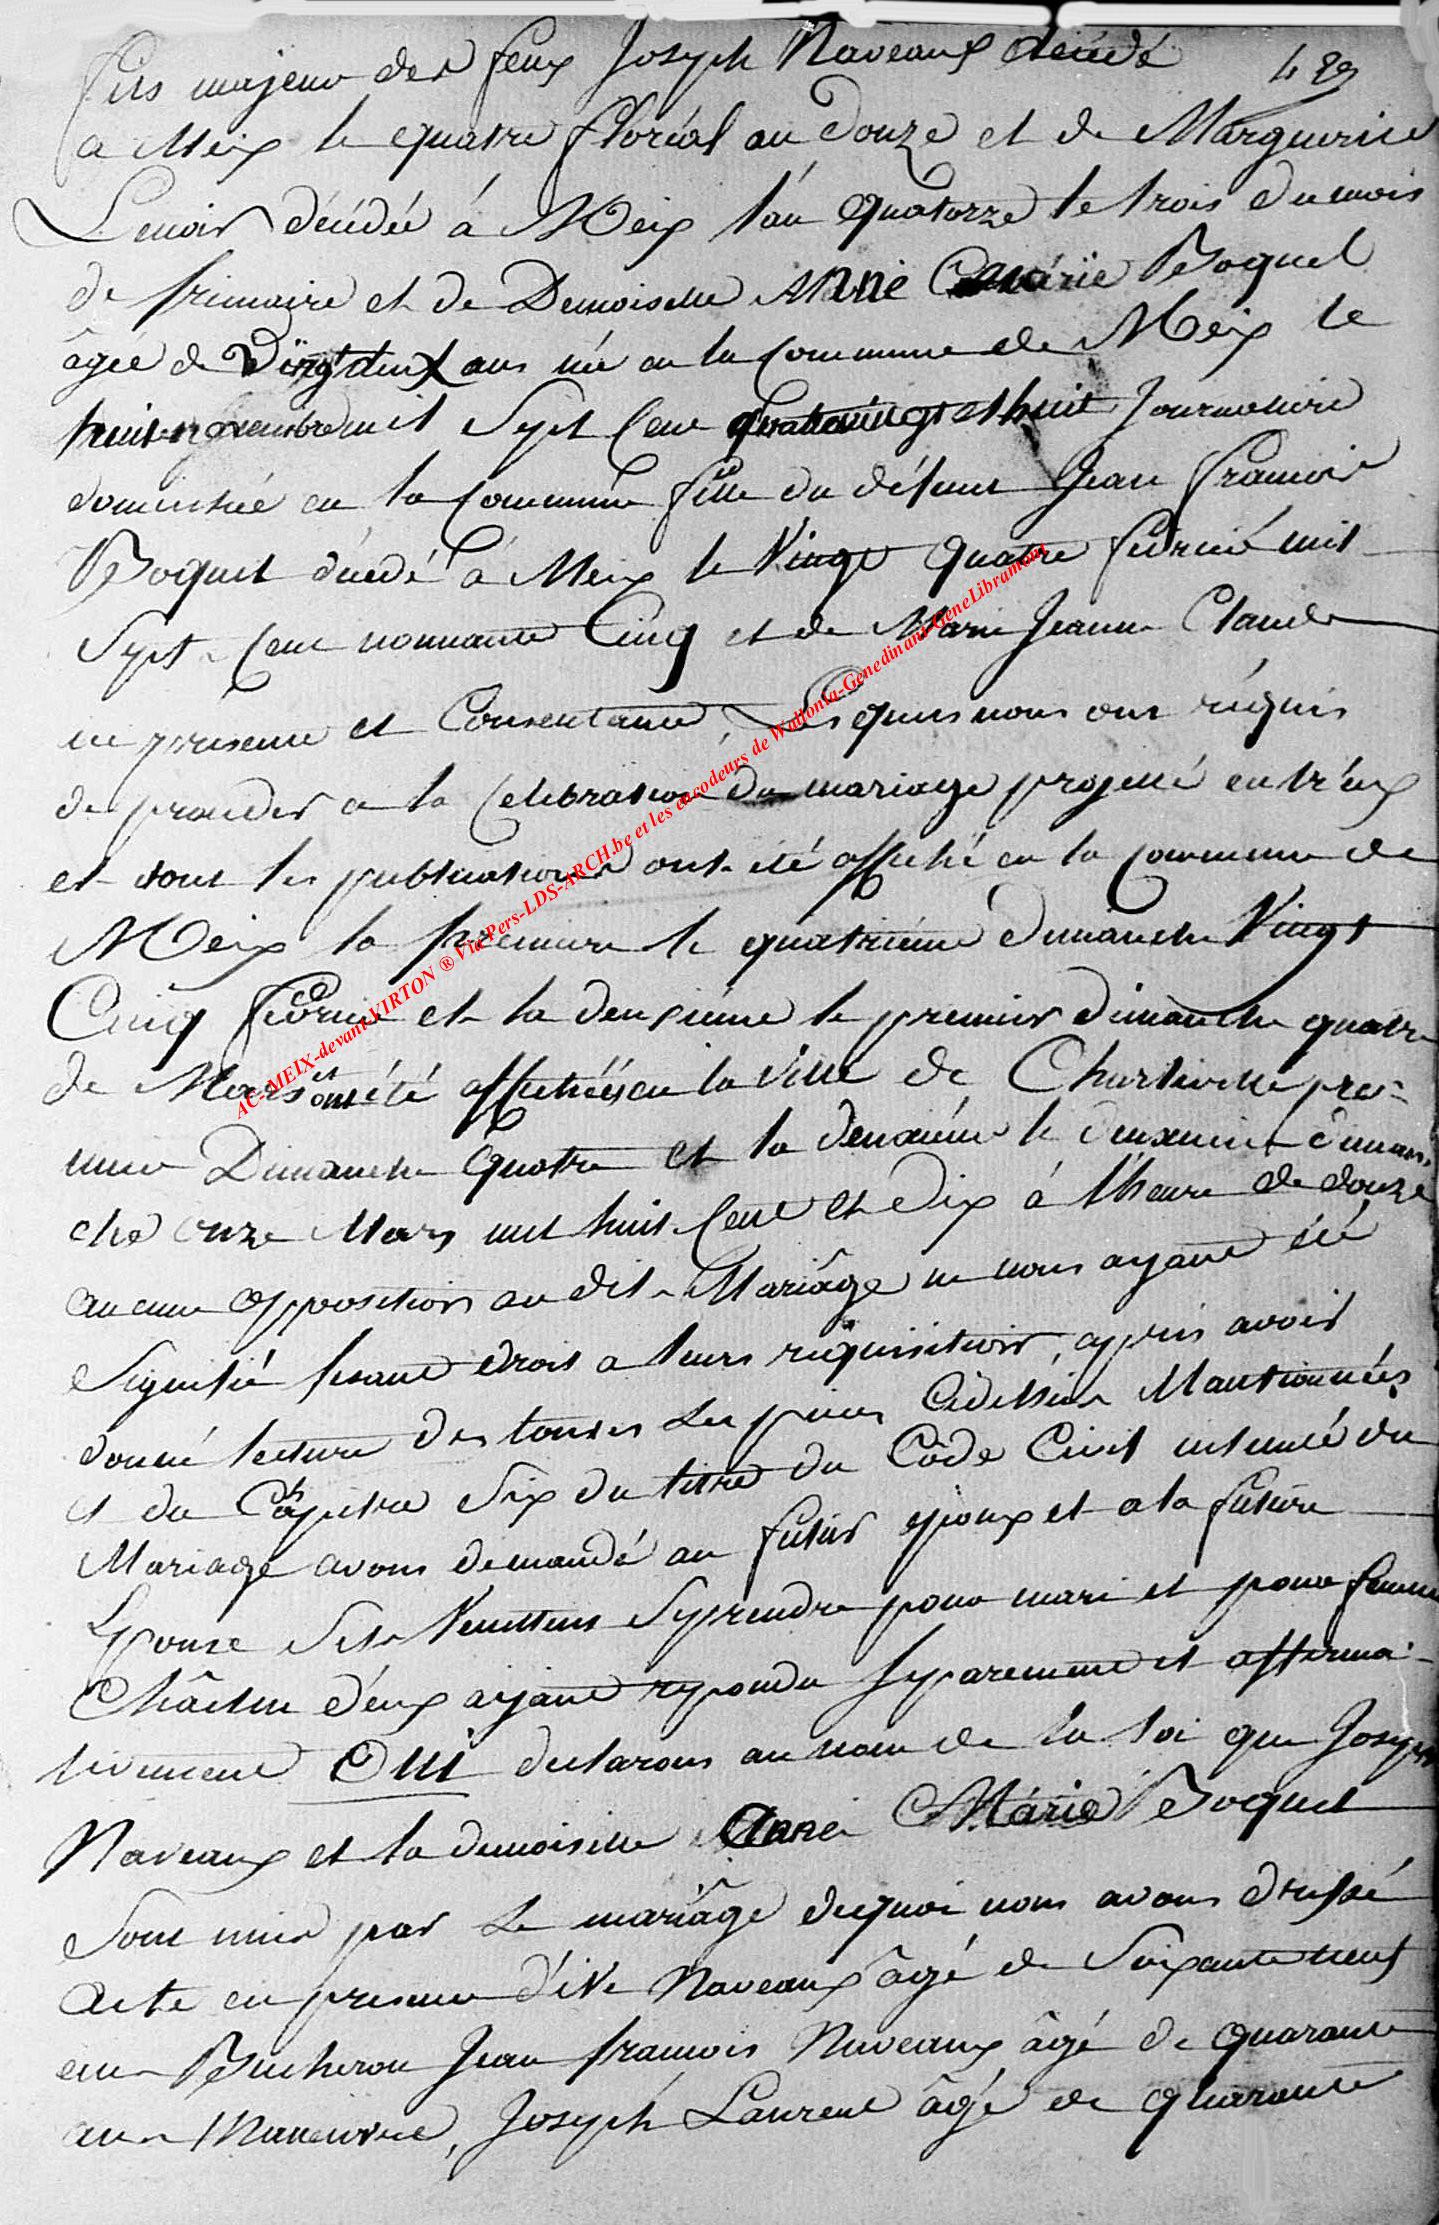 fils majeur des feux Joseph Naveaux décédé 429
a Meix le quatre floréal an Douze et de Marguerite
Lenoir décédée à Meix l'an quatorze le trois du mois
de frimaire et de Demoiselle Anne Marie Boquet
âgée de Vingt deux ans née en la Commune de Meix le
huit mil Sept Cent quatrevingt et huit Journaliere
domiciliée en la Commune fille du défunt Jean francois
Boquet décédé à Meix le Vingt quatre fevrié mil
Sept Cent nonnante Cinq et de Marie Jeanne Claude
ici presente et Consentante, Lesquels nous ont réquis
de proceder a la Celebration du mariage projetté entr'eux
et dont les publications ont été affiché en la Commune de
Meix la premiere le quatriéme dimanche Vingt
Cinq fevrié et la deuxiéme le premier dimanche quatre
de Mars et ont été affichées en la Ville de Charleville pre-
mier Dimanche quatre et la deuxiéme le deuxieme diman-
che onze Mars mil huit Cent et Dix à l'heure de douze
aucune opposition au dit Mariâge ne nous ayant été
Signifié fesant droit a leurs réquisition, apris avoir
donné lecture des toutes Les pieces Cidessus Mantionnées
et du Chapitre Six du titre du Côde Civil intitulé du
Mariage avons demandé au futur epoux et a la future
Epouse S'ils Veullent Se prendre pour mari et pour femme
Châcun d'eux aijant repondu Separement et affirma-
tivement Oui declarons au nom de la loi que Joseph
Naveaux et la demoiselle Anne Marie Boquet
Sont unis par Le mariâge dequoi nous avons dressé
Acte en presence d' Naveaux âgé de Soixante neuf
ans Bucheron Jean francois Naveaux âgé de quarante
ans Manoeuvre, Joseph Laurent âgé de quarante
AC-MEIX-devant-VIRTON ® Via Pers-LDS-ARCH.be et les encodeurs de Wallonia-Genedinant-GeneLibramont